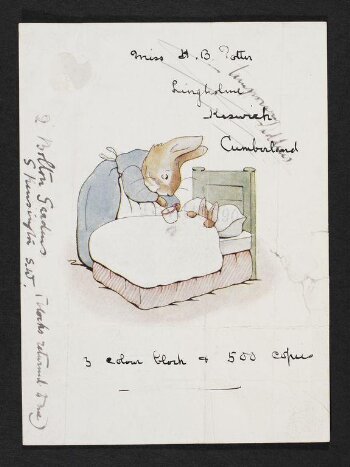 Miss H. B. Potter
Lingholme
Keswick
Cumberland
3 colour block & 500 copies
2 Bolton Gardens (blocks returned to me)
S. Kensington S.W.